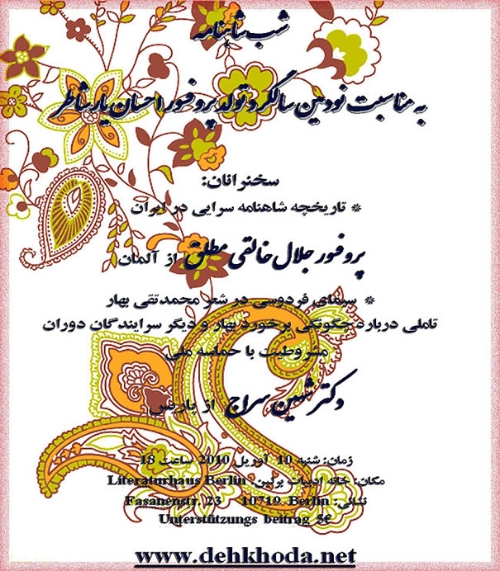 شب شاهنامه
به مناسبت نودمین سالگرد تولد پروفسور احسان یارشاطر
سخنرانان:
* تاریخچه شاهنامه سرایی در ایران
پروفسور جلال خالقی مطلق از آلمان
* سیمای فردوسی در شعر محمدتقی بهار
تاملی درباره چگونگی برخورد بهار و دیگر سرایندگان دوران
مشروطیت با حماسه ملی
دکتر شهین سراج از پاریس
زمان: شنبه 10 آوریل 2010 ساعت 18
مکان: خانه ادبیات برلین Literaturhaus Berlin
نشانی: Fasanenstr. 23 10719 Berlin
Unterstützungs beitrag 5€
www.dehkhoda.net